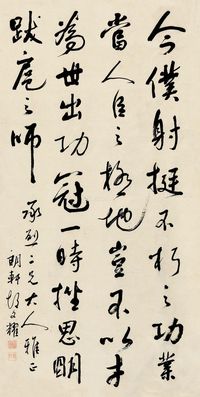 今僕射挺不朽之功業
當人臣之極地豈不以才
為世出功冠一時挫思明
跋扈之師
承烈二兄大人雅正
朗軒